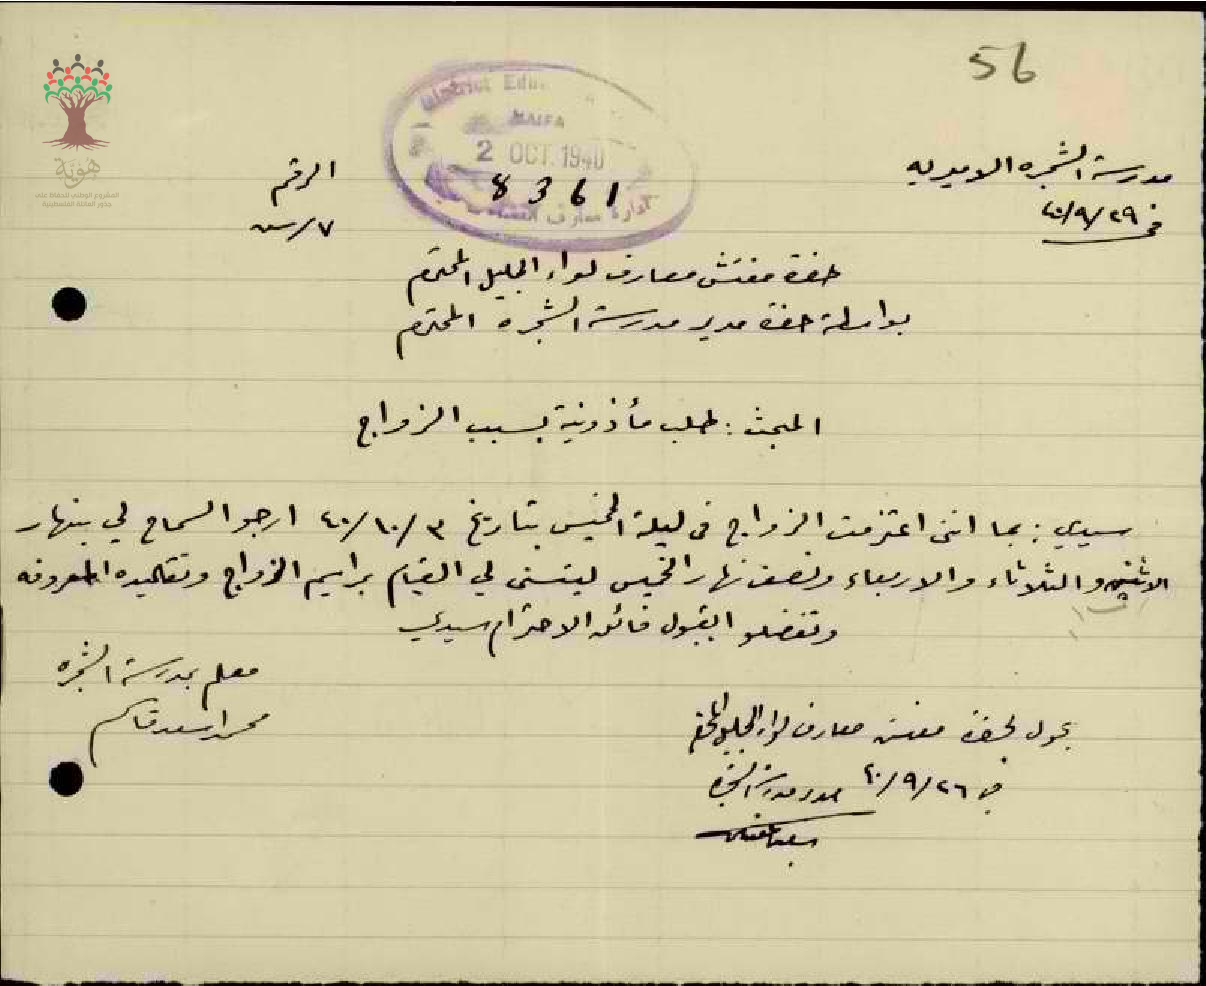 56
هوية
المشروع الوطني للحفاظ على
جذور العائلة الفلسطينية
District Edu
HAIFA
2 OCT. 1940
8361
ادارة معارف
مدرسة الشجره الاميريه
في ٢٩/٩/٤٠
الرقم
٧/س
حضرة مفتش معارف لواء الجليل المحترم
بواسطة حضرة مدير مدرسة الشجرة المحترم
المبحث : طلب مأذونية بسبب الزواج
سيدي : بما انني اعتزمت الزواج في ليلة الخميس بتاريخ ٣/١٠/٤٠ ارجو السماح لي بنهار
الاثنين والثلاثاء والاربعاء ونصف نهار الخميس ليتسنى لي القيام براسيم الزواج وتقاليده المعروفه
وتفضلوا بقبول فائق الاحترام سيدي
معلم بمدرسة الشجره
محمد اسعد قاسم
يحول لحضرة مفتش معارف لواء الجليل المحترم
في ٢٦/٩/٤٠ مدير مدرسة الشجرة